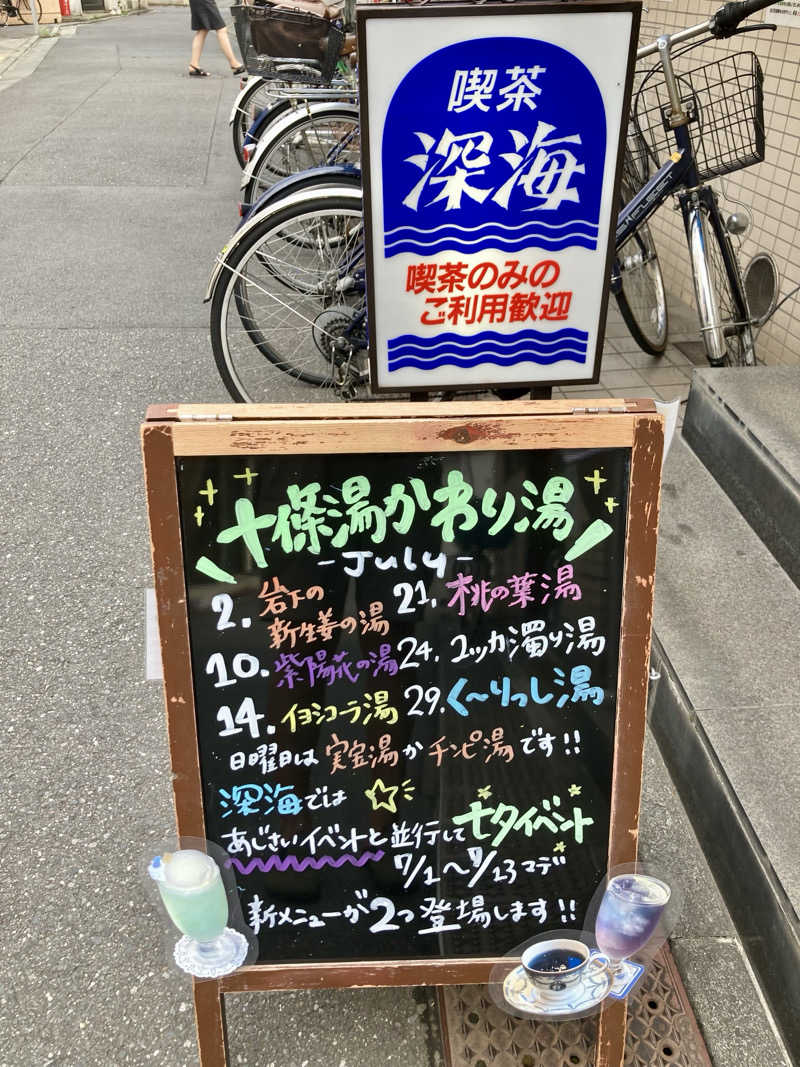 喫茶
深海
喫茶のみの
ご利用歓迎
十條湯かわり湯
-July-
2. 岩下の
新生姜の湯
10. 紫陽花の湯
14. イヨシコーラ湯
21. 桃の葉湯
24. ユッカ濁り湯
29. く〜りっし湯
日曜日は実宝湯かチンピ湯です!!
深海では
あじさいイベントと並行して七夕イベント
7/1〜7/13マデ
新メニューが2つ登場します!!